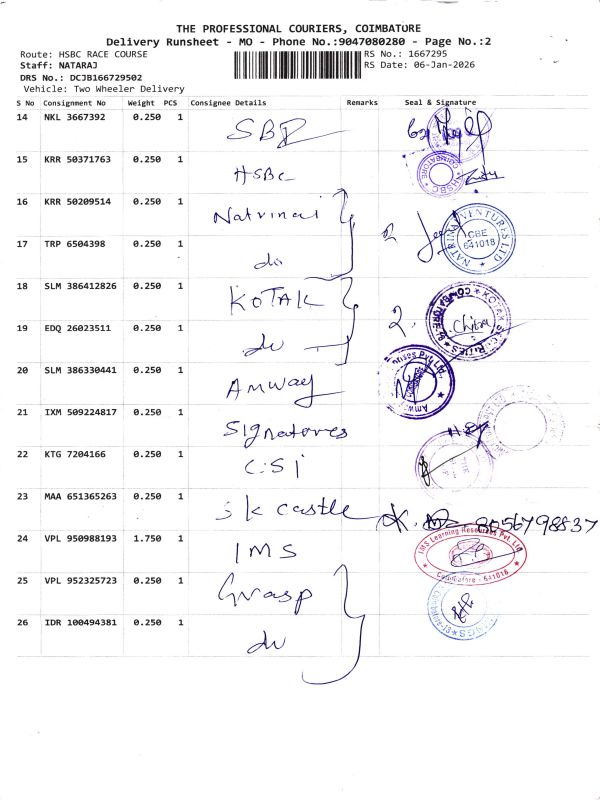 THE PROFESSIONAL COURIERS, COIMBATORE
Delivery Runsheet - MO - Phone No.:9047080280 - Page No.:2
Route: HSBC RACE COURSE
RS No.: 1667295
Staff: NATARAJ
RS Date: 06-Jan-2026
DRS No.: DCJB166729502
Vehicle: Two Wheeler Delivery
S No Consignment No Weight PCS Consignee Details Remarks Seal & Signature
14 NKL 3667392 0.250 1
15 KRR 50371763 0.250 1 HSBC COIMBATORE HSBC
16 KRR 50209514 0.250 1 Natrinai
17 TRP 6504398 0.250 1 do 2 VENTURES LTD CBE 641018
18 SLM 386412826 0.250 1 KOTAK
19 EDQ 26023511 0.250 1 do 2. KOTAK SECURITIES COIMBATORE
20 SLM 386330441 0.250 1 Amway Pvt. Ltd.
21 IXM 509224817 0.250 1 Signatures
22 KTG 7204166 0.250 1 CSI
23 MAA 651365263 0.250 1 Sk castle 8056798837
24 VPL 950988193 1.750 1 IMS IMS Learning Resources Pvt. Ltd. Coimbatore - 641018
25 VPL 952325723 0.250 1 Grasp
26 IDR 100494381 0.250 1 do